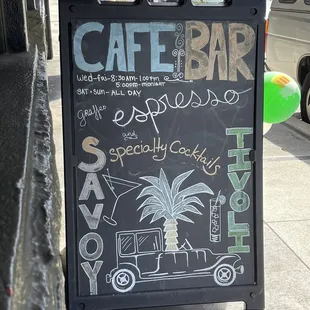 CAFE BAR
Wed-Fri-8:30AM-1:00pm
5:00pm-MIDNIGHT
SAT-SUN-ALL DAY
graffeo
espresso
and
specialty Cocktails
SAVOY
TIVOLI